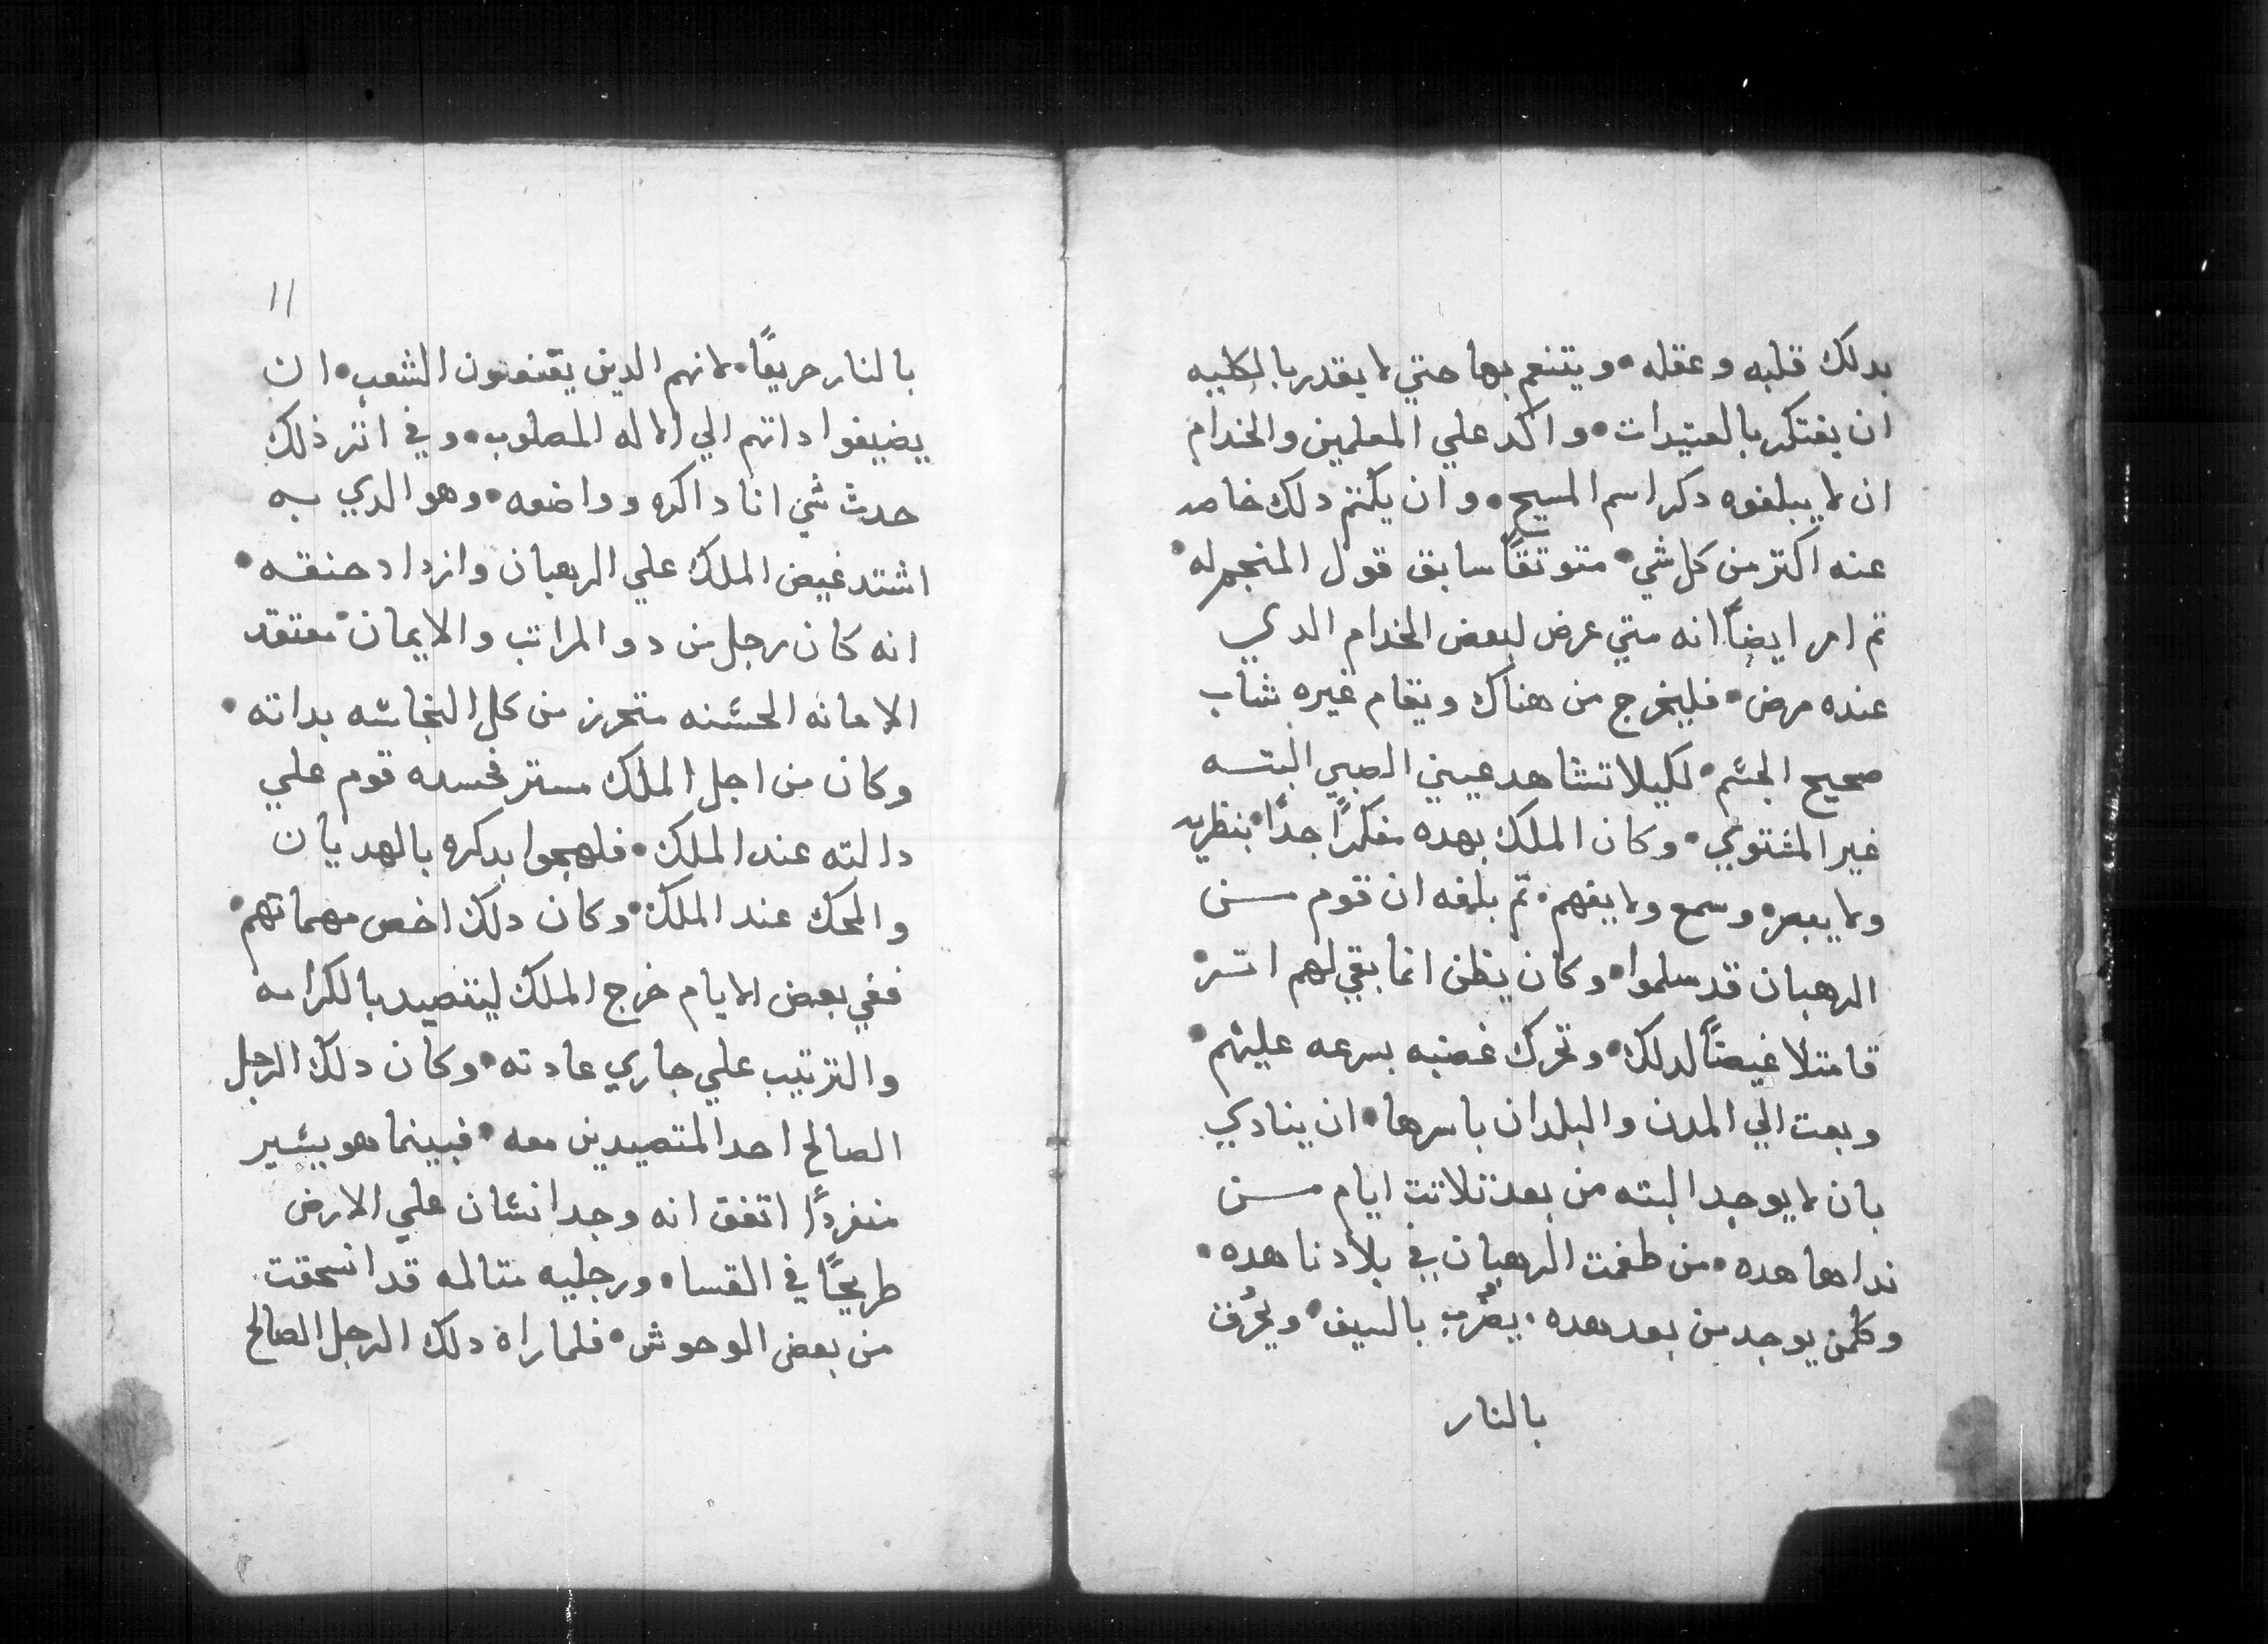 بدلك قلبه وعقله• ويتنعم بها حتي لا يقدر بالكليه
ان يفتكر بالعتيدات• واكد علي المعلمين والخدام
ان لا يبلغوه دكر اسم المسيح• وان يكتم دلك خاصه
عنه اكتر من كل شي• متوتقًا سابق قول المنجم له•
تم امر ايضاً انه متي عرض لبعض الخدام الدي
عنده مرض• فليخرج من هناك ويقام غيره شاب
صحيح الجسم• لكيلا تشاهد عيني الصبي البته
غير المستوي• وكان الملك بهده مفكرًا جدًا• بنظريه
ولا يبصر• وسمع ولا يفهم• تم بلغه ان قوم من
الرهبان قد سلموا• وكان يظن انما بقي لهم اتر•
فامتلا غيضًا لدلك• وتحرك غضبه بسرعه عليهم•
وبعت الي المدن والبلدان باسرها• ان ينادي
بان لا يوجد البته من بعد تلاتت ايام من
نداها هده• من طغمت الرهبان في بلادنا هده•
وكلمن يوجد من بعد هده• يضُرب بالسيف• ويُحرق
بالنار
١١
بالنار حريقًا• لانهم الدين يقنعون الشعب• ان
يضيفوا داتهم الي الاله المصلوب• وفي اتر ذلك
حدث شي انا داكره وواضعه• وهو الدي به
اشتد غيض الملك علي الرهبان وازداد حنقه•
انه كان رجل من دو المراتب والايمان• معتقد
الامانه الحسنه متحرز من كل النجاسه بداته•
وكان من اجل الملك مستتر فحسده قوم علي
دالته عند الملك• فلهجوا بدكره بالهديان
والمحك عند الملك• وكان دلك اخص مهماتهم•
ففي بعض الايام خرج الملك ليتصيد بالكرامه
والترتيب علي جاري عادته• وكان دلك الرجل
الصالح احد المتصيدين معه• فبينما هو يسير
منفردًا اتفق انه وجد انسان علي الارض
طريحًا في القسا• ورجليه متالمه قد انسحقت
من بعض الوحوش• فلما راه دلك الرجل الصالح